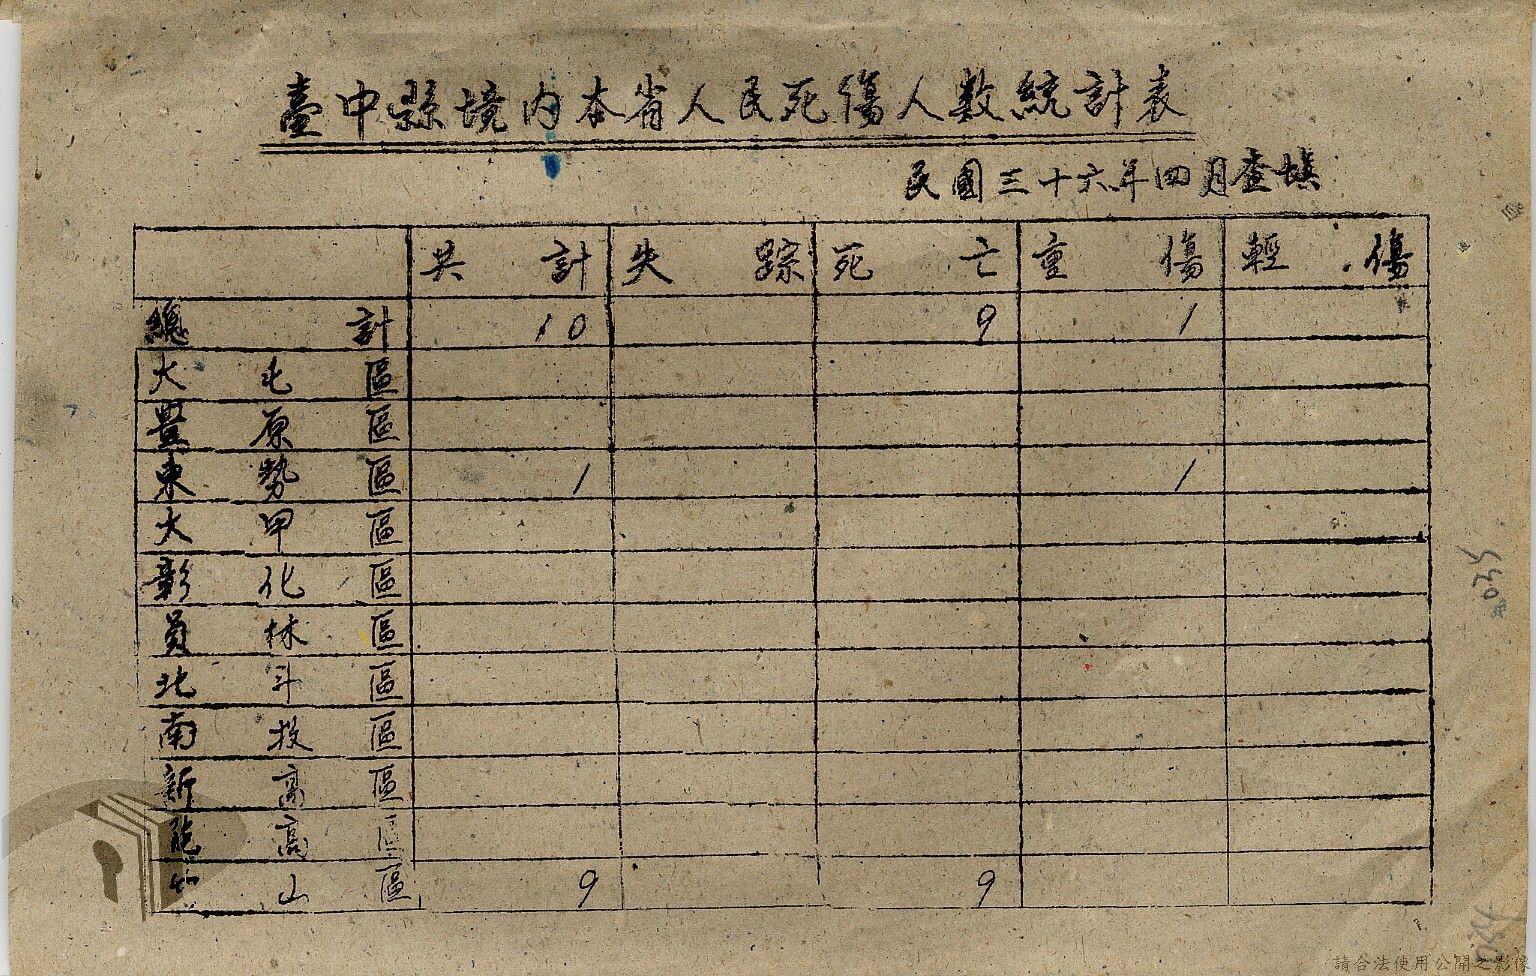 臺中縣境内本省人民死傷人数統計表
民國三十六年四月查填
共計 失踪 死亡 重傷 輕傷
總計 10 9 1
大屯區
豐原區
東勢區 1 1
大甲區
彰化區
員林區
北斗區
南投區
新高區
能高區
山區 9 9
035
034
請合法使用公開之影像